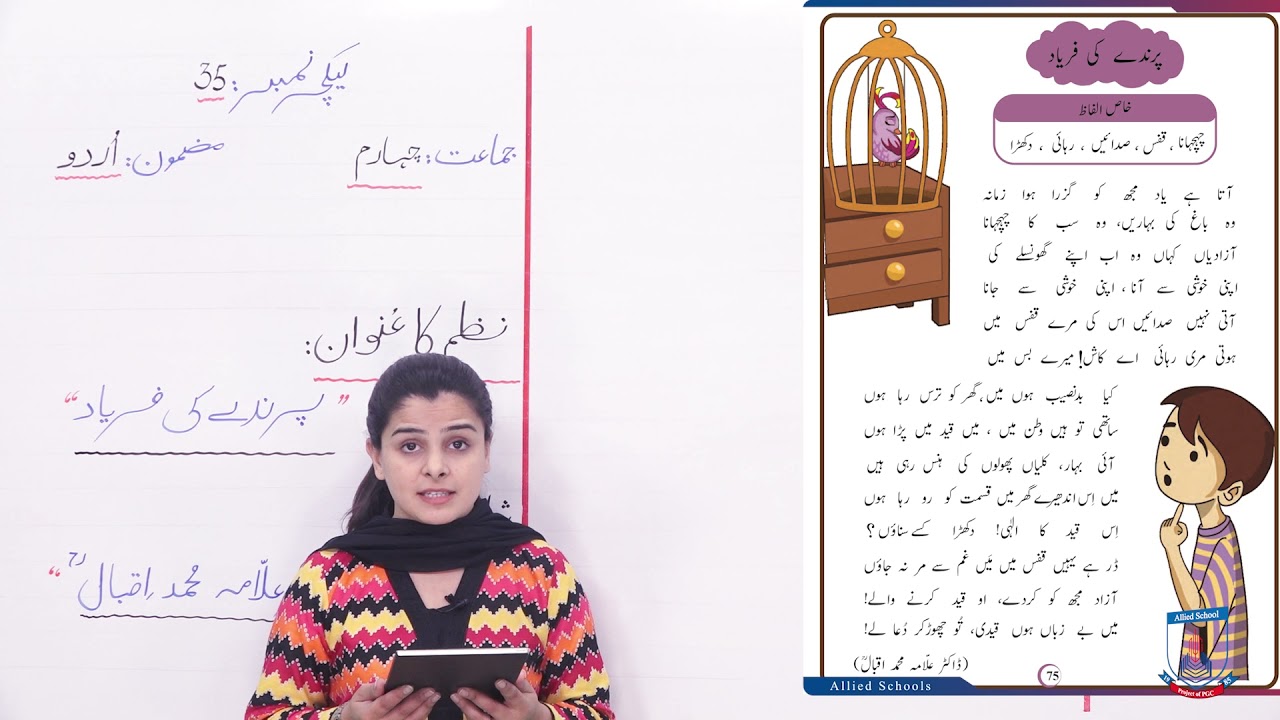 لیکچر نمبر: 35
جماعت: چہارم
مضمون: اُردو
نظم کا عُنوان:
"پرندے کی فریاد"
"علّامہ محمد اِقبالؒ
پرندے کی فریاد
خاص الفاظ
چہچہانا ، قفس ، صدائیں ، رہائی ، دکھڑا
آتا ہے یاد مجھ کو گزرا ہوا زمانہ
وہ باغ کی بہاریں، وہ سب کا چہچہانا
آزادیاں کہاں وہ اب اپنے گھونسلے کی
اپنی خوشی سے آنا ، اپنی خوشی سے جانا
آتی نہیں صدائیں اس کی مرے قفس میں
ہوتی مری رہائی اے کاش! میرے بس میں
کیا بدنصیب ہوں میں، گھر کو ترس رہا ہوں
ساتھی تو ہیں وطن میں ، میں قید میں پڑا ہوں
آئی بہار، کلیاں پھولوں کی ہنس رہی ہیں
میں اِس اندھیرے گھر میں قسمت کو رو رہا ہوں
اِس قید کا الٰہی! دکھڑا کسے سناؤں ؟
ڈر ہے یہیں قفس میں مَیں غم سے مر نہ جاؤں
آزاد مجھ کو کردے، او قید کرنے والے!
میں بے زباں ہوں قیدی، تُو چھوڑ کر دُعا لے!
(ڈاکٹر علّامہ محمد اقبالؒ)
75
Allied Schools
Allied School
19 85
Project of PGC